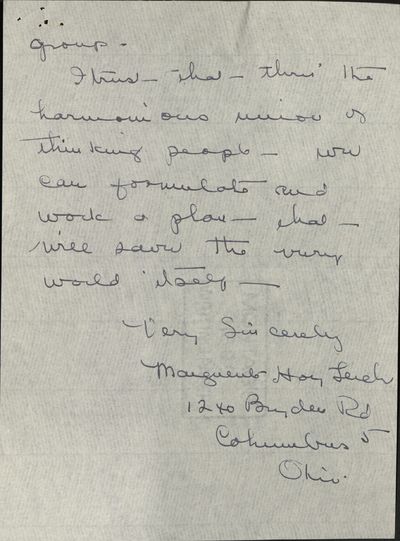 group.
I trust - that - thru' the
harmonious union of
thinking people - we
can formulate and
work a plan - that -
will save the very
world itself -
Very Sincerely
Marguerite Hoy
1240 Bryden Rd
Columbus 5
Ohio.